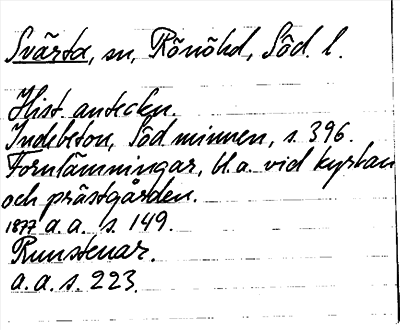 Svärta, sn, Rönöhd, Söd. l.
Hist. anteckn.
Indebetou, Söd minnen, s. 396.
Fornlämningar, bl. a. vid kyrkan
och prästgården.
1877 a. a. s. 149.
Runstenar.
a. a. s. 223.